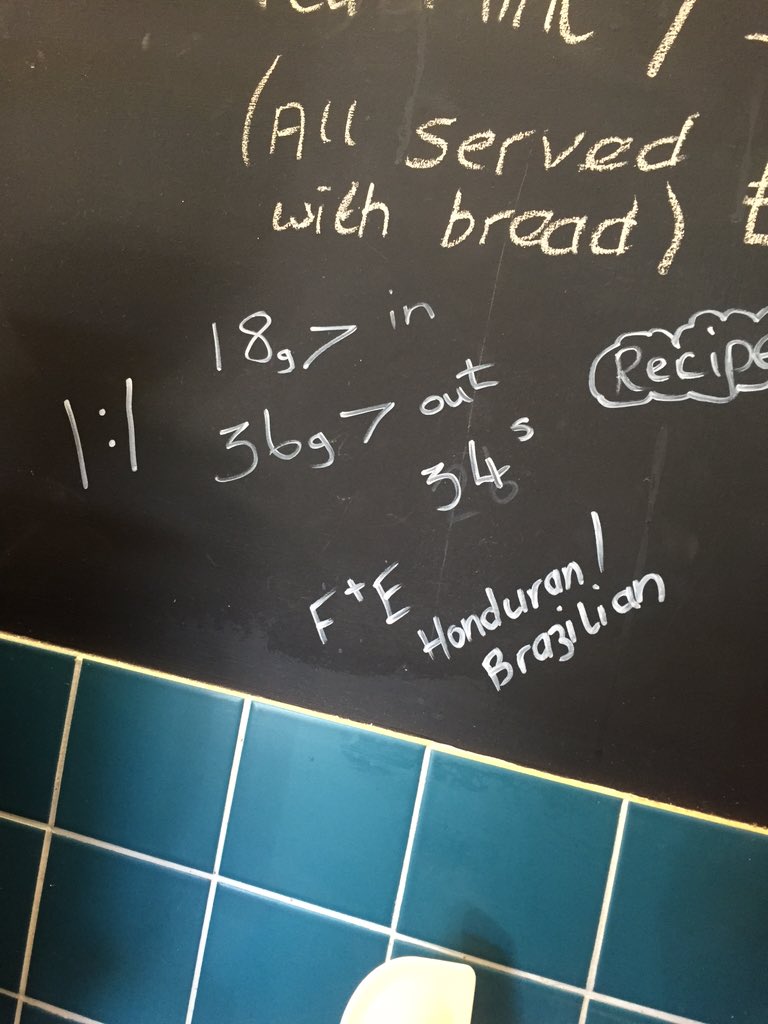 (All served
with bread)
18g> in
Recipe
1:1
36g> out
34s
F+E
Honduran/
Brazilian